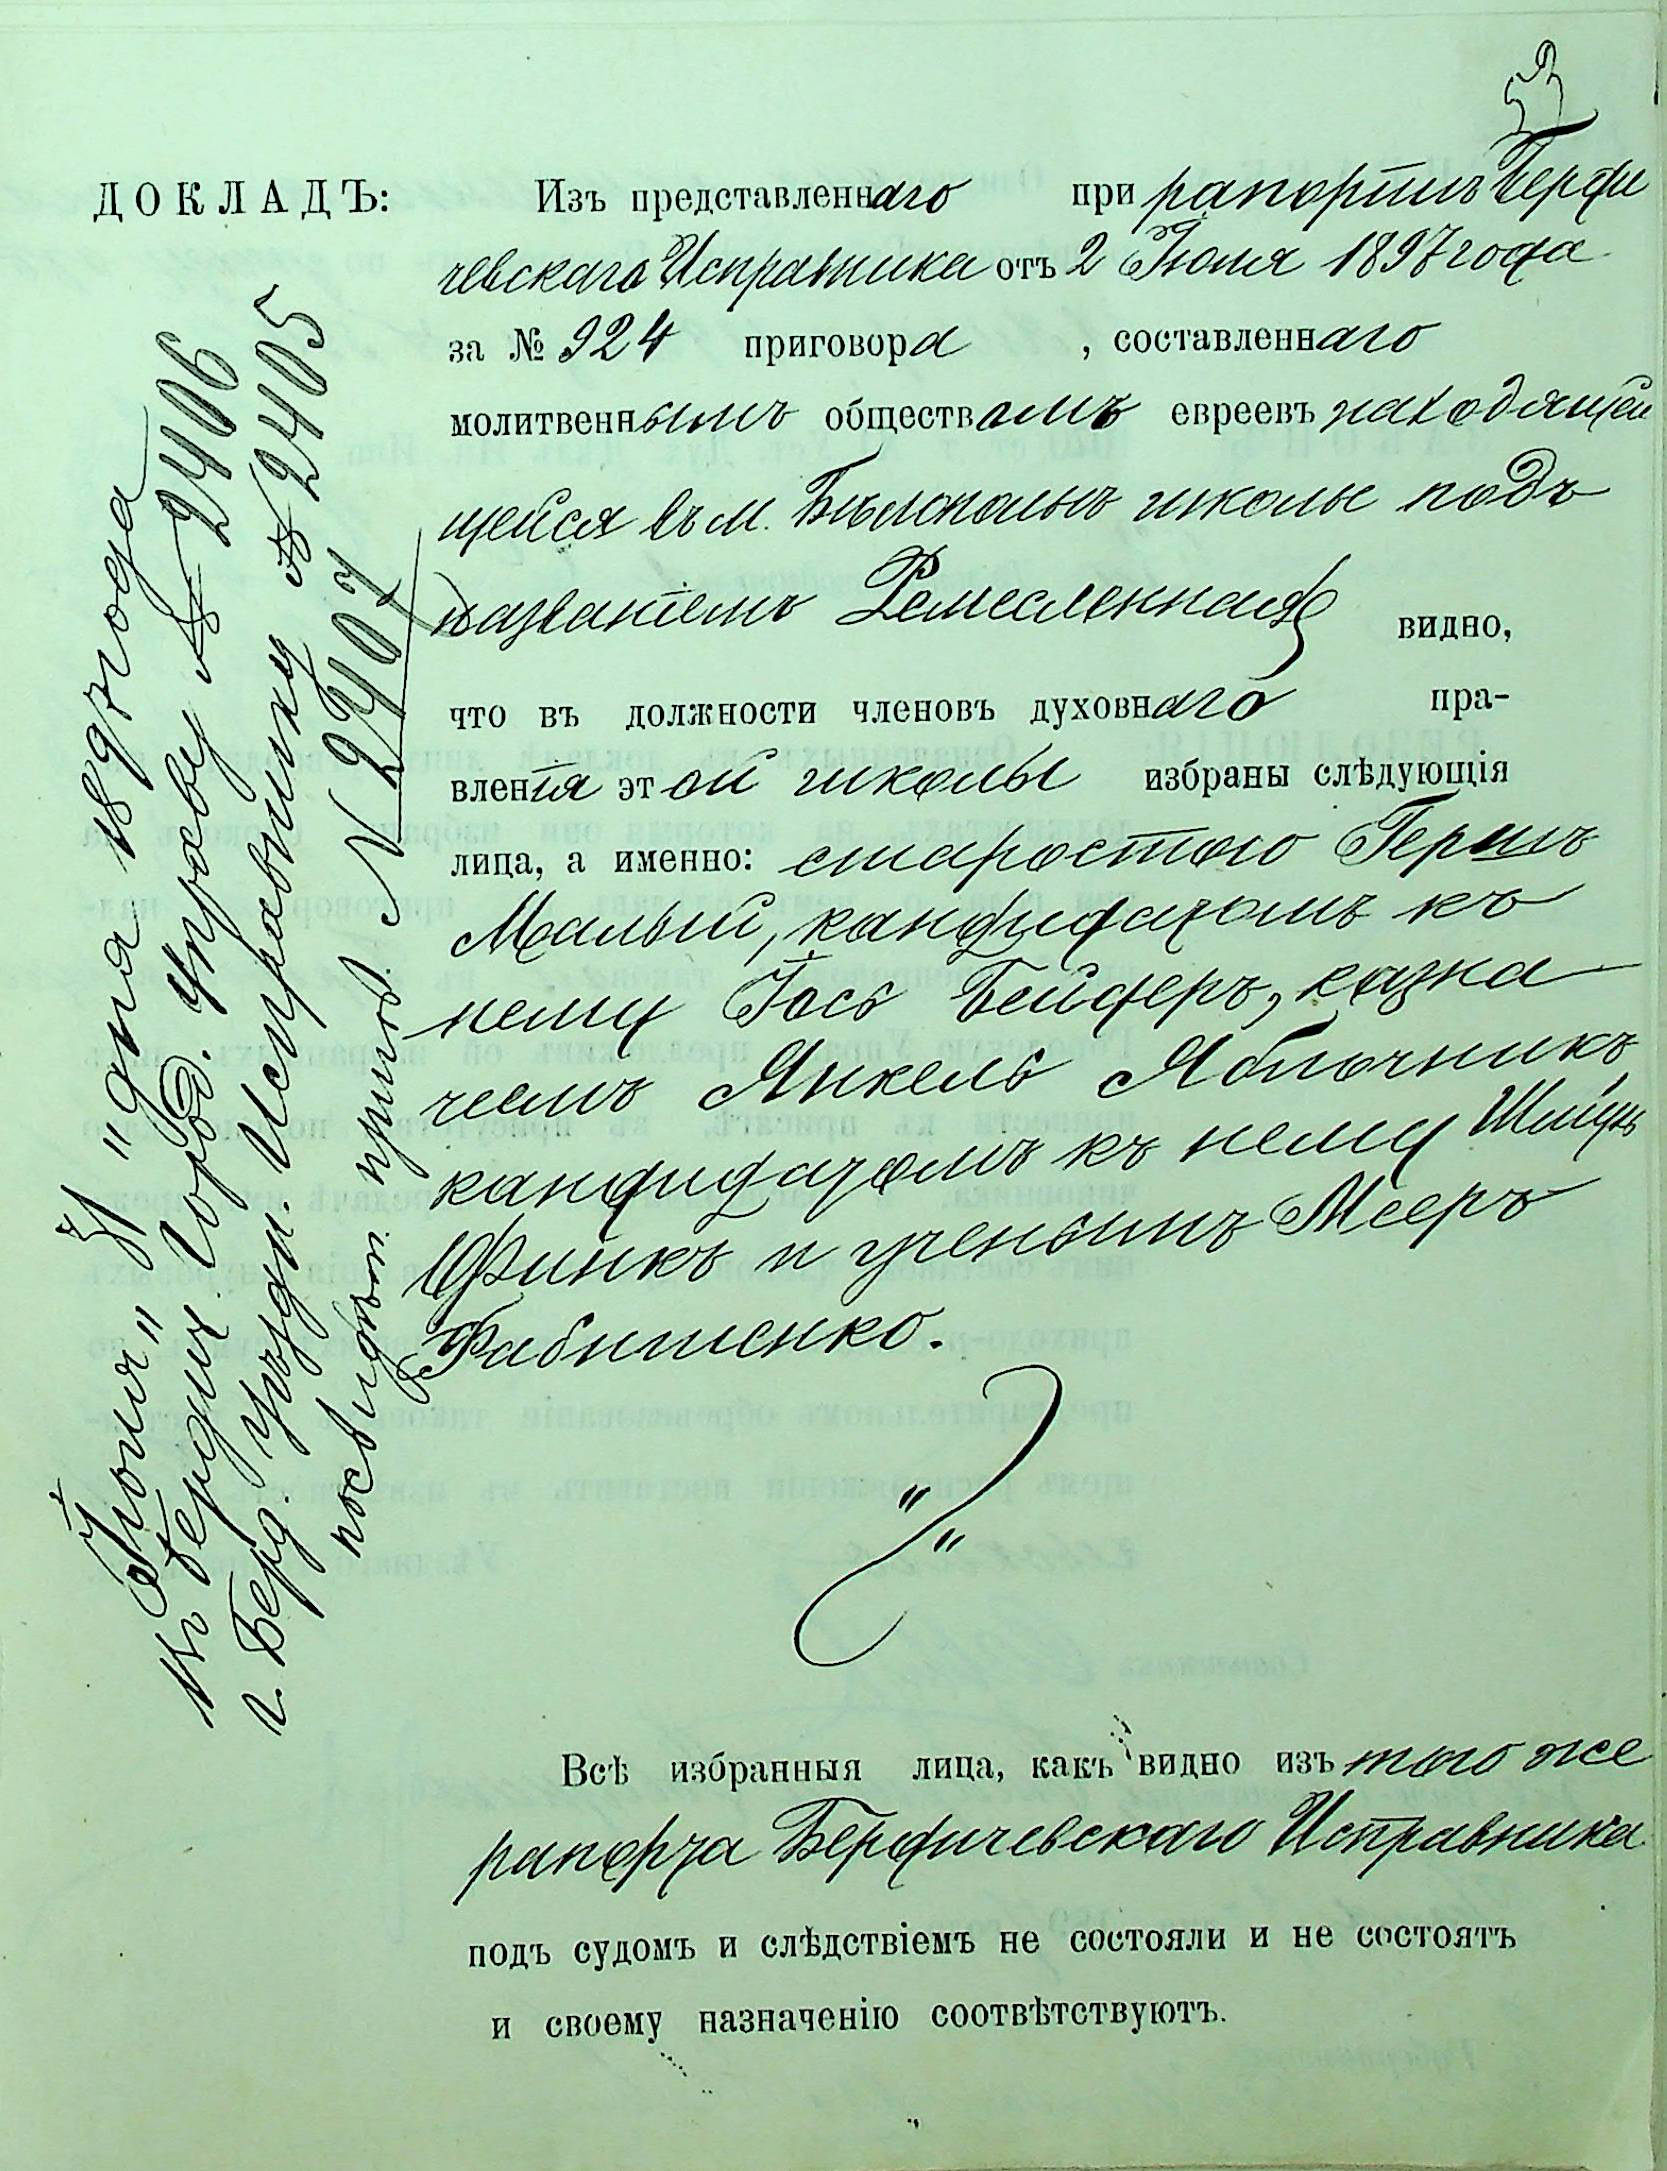 53
ДОКЛАДЪ:
Изъ представленнаго при рапортѣ Берди
чевскаго Исправника отъ 2 Іюля 1897 года
за № 924 приговора, составленнаго
молитвеннымъ обществомъ евреевъ находящей
щейся въ м. Бѣлопольѣ школы подъ
названіемъ Ремесленная видно,
что въ должности членовъ духовнаго пра-
вленія этой школы избраны слѣдующія
лица, а именно: старостою Гершъ
Малый, кандидатомъ къ
нему Іось Бейдеръ, казна
чеемъ Янкель Яблочникъ
кандидатомъ къ нему
Финкъ и ученымъ Мееръ
Фабишенко.
Всѣ избранныя лица, какъ видно изъ того же
рапорта Бердичевскаго Исправника
подъ судомъ и слѣдствіемъ не состояли и не состоятъ
и своему назначенію соотвѣтствуютъ.
Іюля" "дня 1897 года
Бердич. Город. Управу № 2406
г. Берд. Уѣздн. Исправнику № 2405
посвидѣт. пригов. № 2407